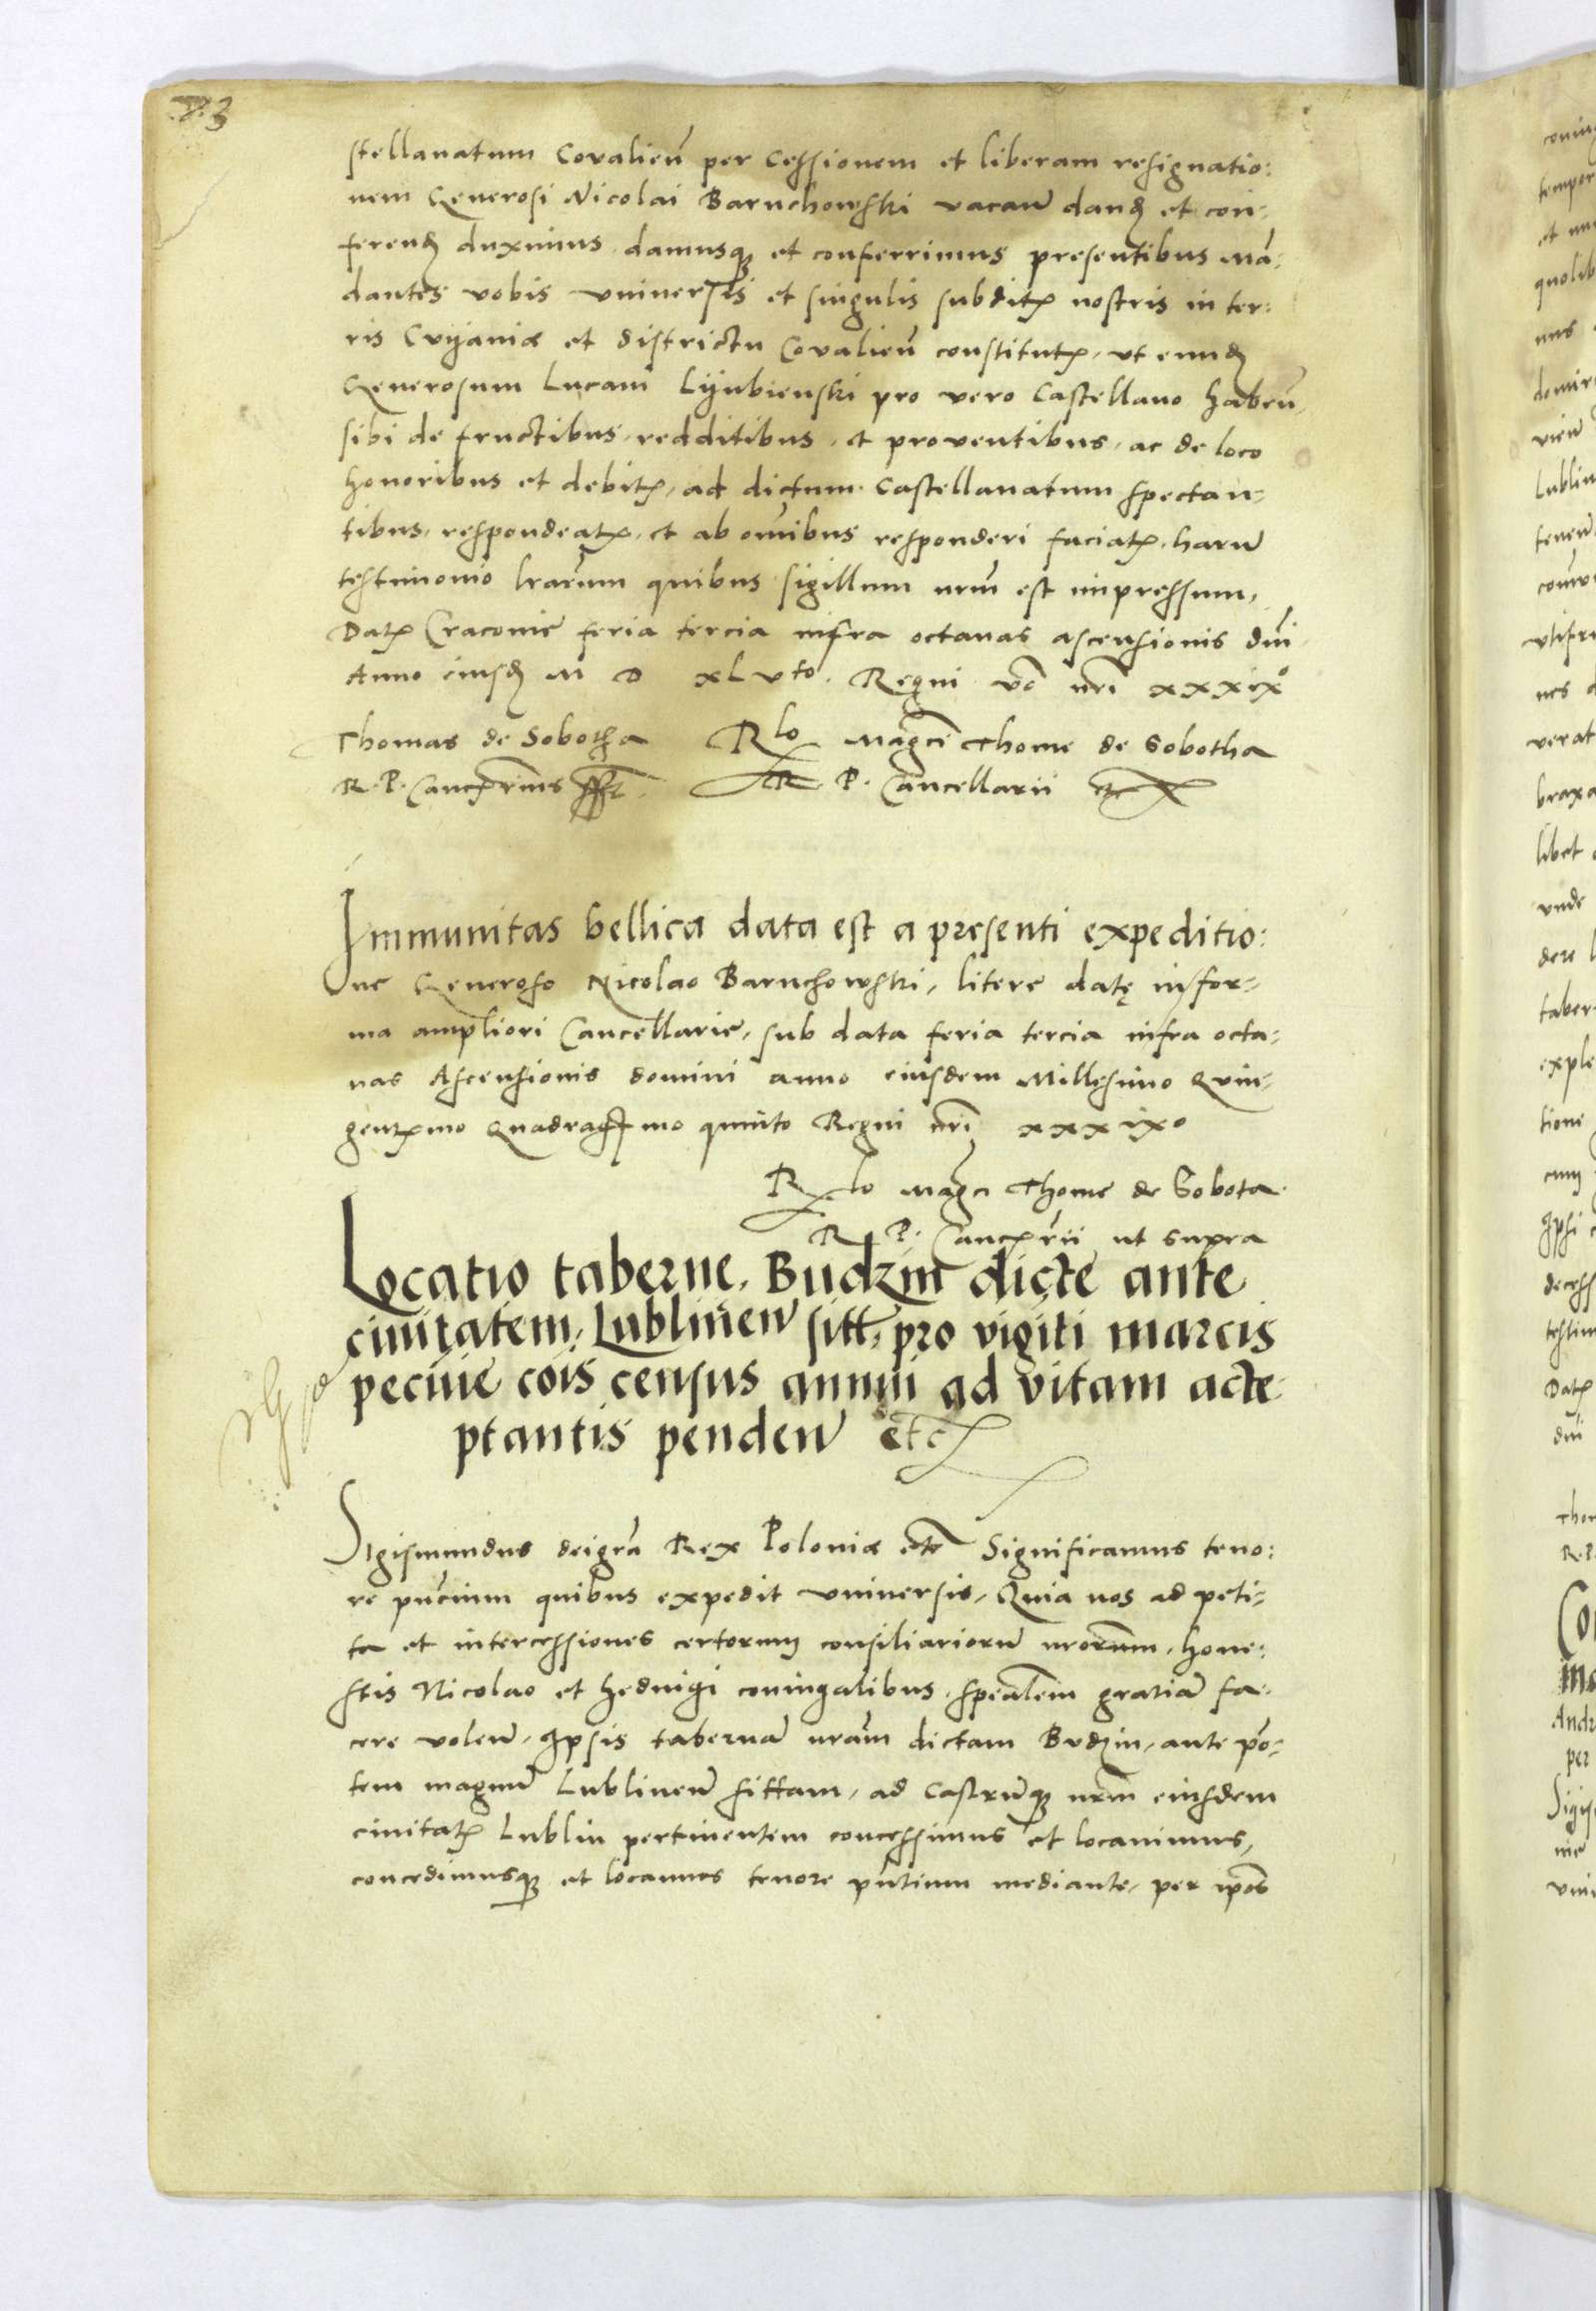 stellanatum Covalien̄ per Cessionem et liberam resignatio:
nem Generosi Nicolai Baruchowski vacan̄ danđ et con-
ferenđ duximus damusq3 et conferrimus presentibus Mā-
dantes vobis vniuersis et singulis subditꝭ nostris in ter:
ris Cuyaniæ et districtu Covalien̄ constitutꝭ, vt eunđ
Generosum Lucam Lyubienski pro vero Castellano haben̄,
sibi de fructibus, redditibus, et proventibus, ac de loco
honoribus et debitꝭ, ad dictum Castellanatum spectan-
tibus, respondeatꝭ, et ab om̄ibus responderi faciatꝭ, harū
testimonio lrārum quibus sigillum nrm̄ est impressum,
Datꝭ Cracovie feria tercia infra octavas ascensionis dn̄i
Anno eiusđ M D xLvto. Regni vo nr̄i xxxixo
Thomas de Sobotha Rlo Magc̄i Thome de Sobotha
R. P. Cancꝭrius sst. R. P. Cancellarii etc
Immunitas bellica data est a presenti expeditio:
ne Generoso Nicolao Baruchowski, litere datę in for-
ma ampliori Cancellarie, sub data feria tercia infra octa-
vas Ascensionis domini anno eiusdem Millesimo Quin-
gentꝭmo Quadragsmo quinto Regni nr̄i xxxixo
Rlo Magci Thome de Sobota
R. P. Cancꝭrii ut supra
Locatio taberne, Budzin dicte ante
ciuitatem, Lublinen̄ sitt, pro vigiti marcis
pecuie cois census annui ad vitam acte
ptantis penden̄ etc
Sigismundus dei gr̄a Rex Poloniæ etc Significamus teno:
re pn̄cium quibus expedit vniuersis, Quia nos ad peti-
ta et intercessiones certorum consiliariorū nrorum, hone:
stis Nicolao et Hedvigi coniugalibus, spēalem gratiā fa-
cere volen̄, Ipsis tabernā nrām dictam Budzin, ante pō-
tem magnū Lublinen̄ sittam, ad Castrūq3 nrm̄ eiusdem
ciuitatꝭ Lublin pertinentem concessimus et locauimus,
concedimusq3 et locamus tenore pn̄tium mediante, per ipos